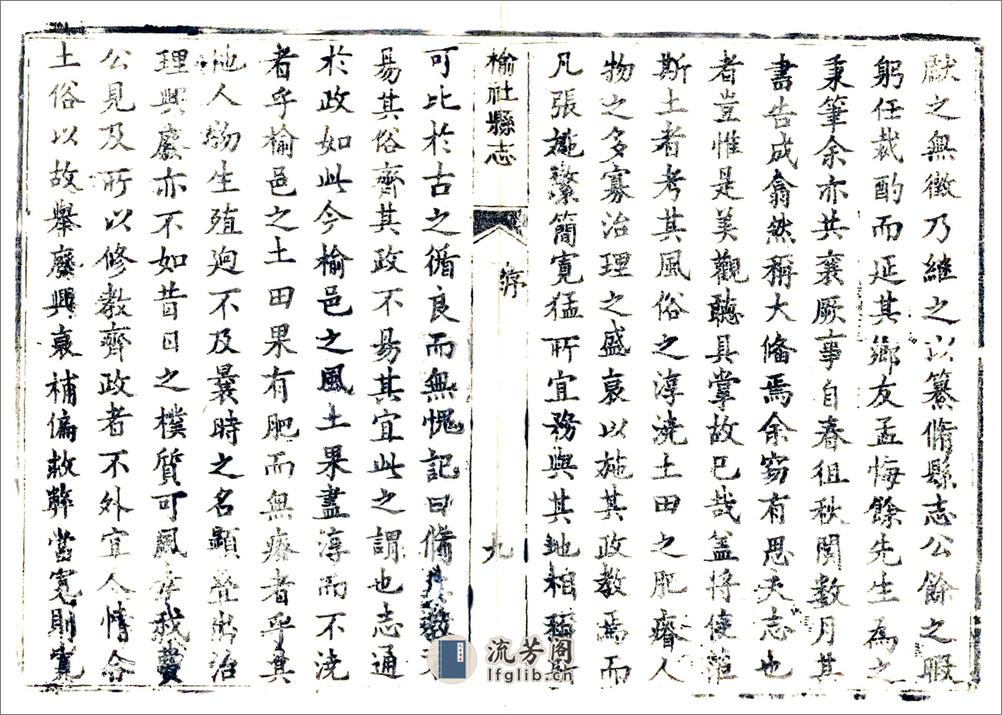 獻之無徵乃繼之以纂脩縣志公餘之暇
躬任裁酌而延其鄉友孟悔餘先生為之
秉筆余亦共襄厥事自春徂秋閱数月其
書告成翕然稱大俻焉余窃有思夫志也
者豈惟是美觀聽具掌故已哉盖将使范
斯土者考其風俗之淳澆土田之肥瘠人
物之多寡治理之盛衰以施其政教焉而
凡張施繁簡寛猛所宜務與其地相稱
榆社縣志
序
九
可比於古之循良而無愧記曰脩其教不
易其俗齊其政不易其宜此之謂也志通
於政如此今榆邑之風土果盡淳而不澆
者乎榆邑之土田果有肥而無瘠者乎其
地人物生殖迥不及曩時之名顯疊出治
理興廢亦不如昔日之樸質可風幸我費
公見及所以修教齊政者不外宜人情合
土俗以故舉廢興衰補偏救弊當寛則寛
流芳阁
lfglib.cn